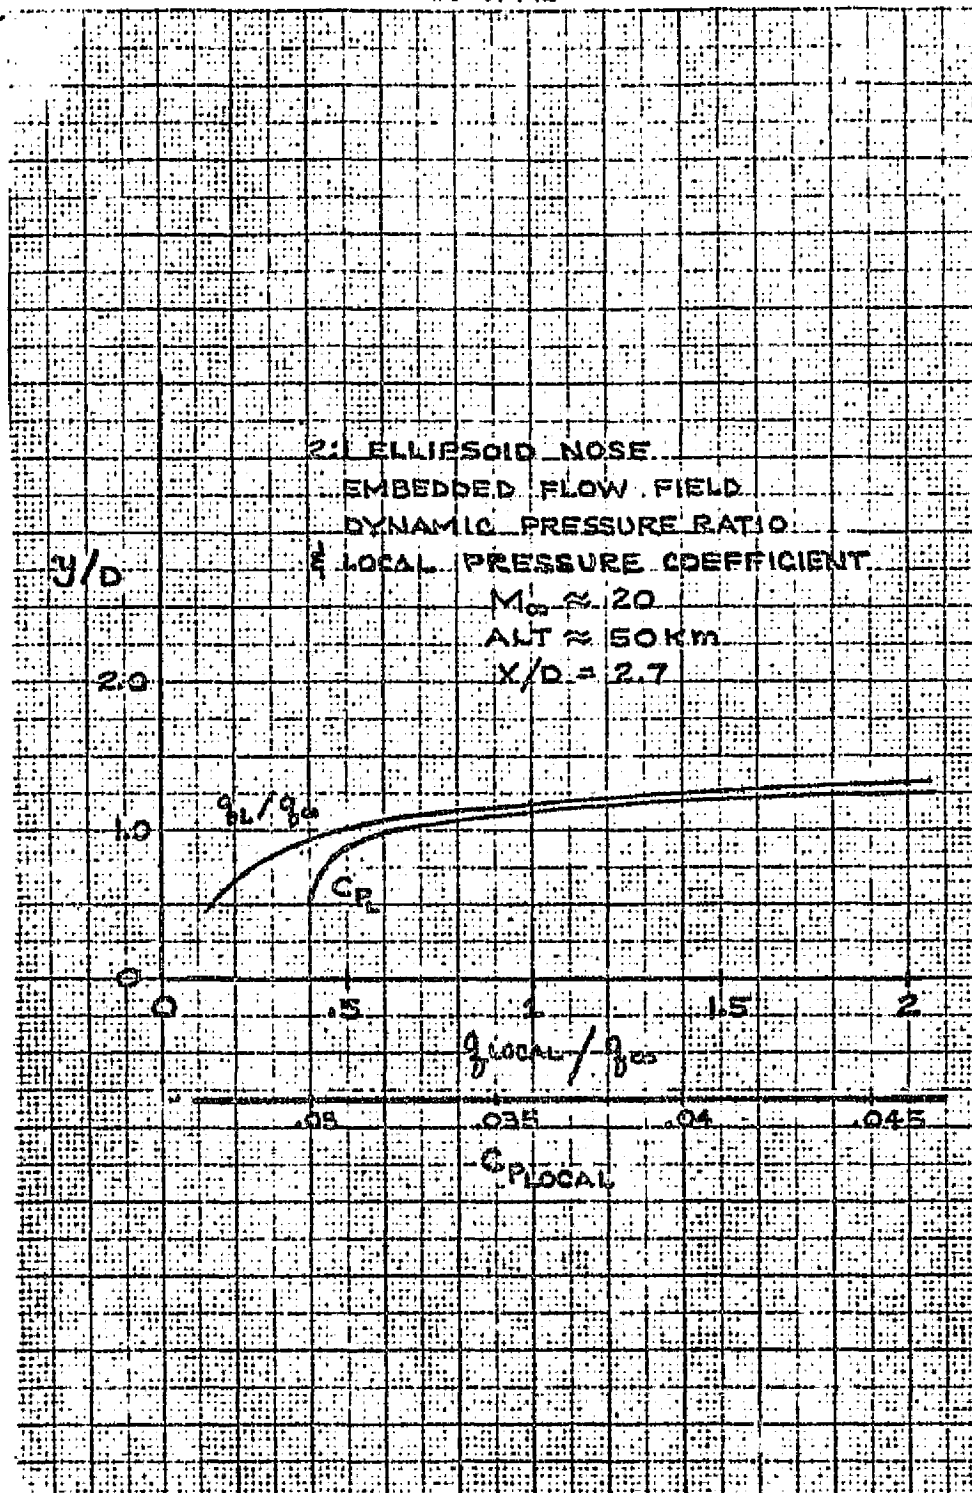 2:1 ELLIPSOID NOSE
EMBEDDED FLOW FIELD
DYNAMIC PRESSURE RATIO
& LOCAL PRESSURE COEFFICIENT
M∞ ≈ 20
ALT ≈ 50 Km
X/D = 2.7
y/D
2.0
1.0
0
qL/q∞
CPL
0 .5 1 1.5 2
qLOCAL/q∞
.03 .035 .04 .045
CPLOCAL